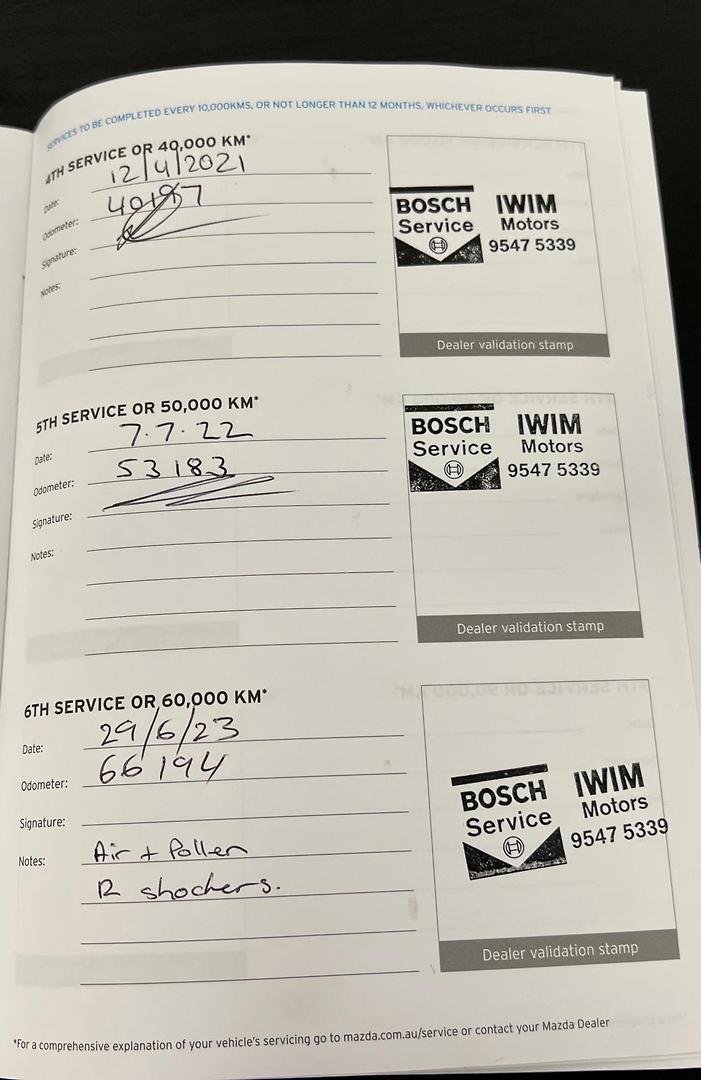 SERVICES TO BE COMPLETED EVERY 10,000KMS, OR NOT LONGER THAN 12 MONTHS, WHICHEVER OCCURS FIRST
4TH SERVICE OR 40,000 KM*
Date: 12/4/2021
Odometer: 40197
Signature:
Notes:
BOSCH IWIM
Service Motors
9547 5339
Dealer validation stamp
5TH SERVICE OR 50,000 KM*
Date: 7.7.22
Odometer: 53183
Signature:
Notes:
BOSCH IWIM
Service Motors
9547 5339
Dealer validation stamp
6TH SERVICE OR 60,000 KM*
Date: 29/6/23
Odometer: 66194
Signature:
Notes: Air + Pollen
R shockers.
BOSCH IWIM
Service Motors
9547 5339
Dealer validation stamp
*For a comprehensive explanation of your vehicle's servicing go to mazda.com.au/service or contact your Mazda Dealer